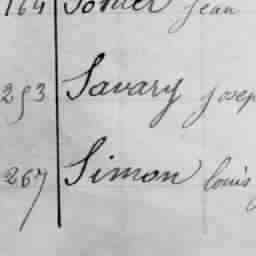 164 Jean
253 Savary Josep
267 Simon Louis